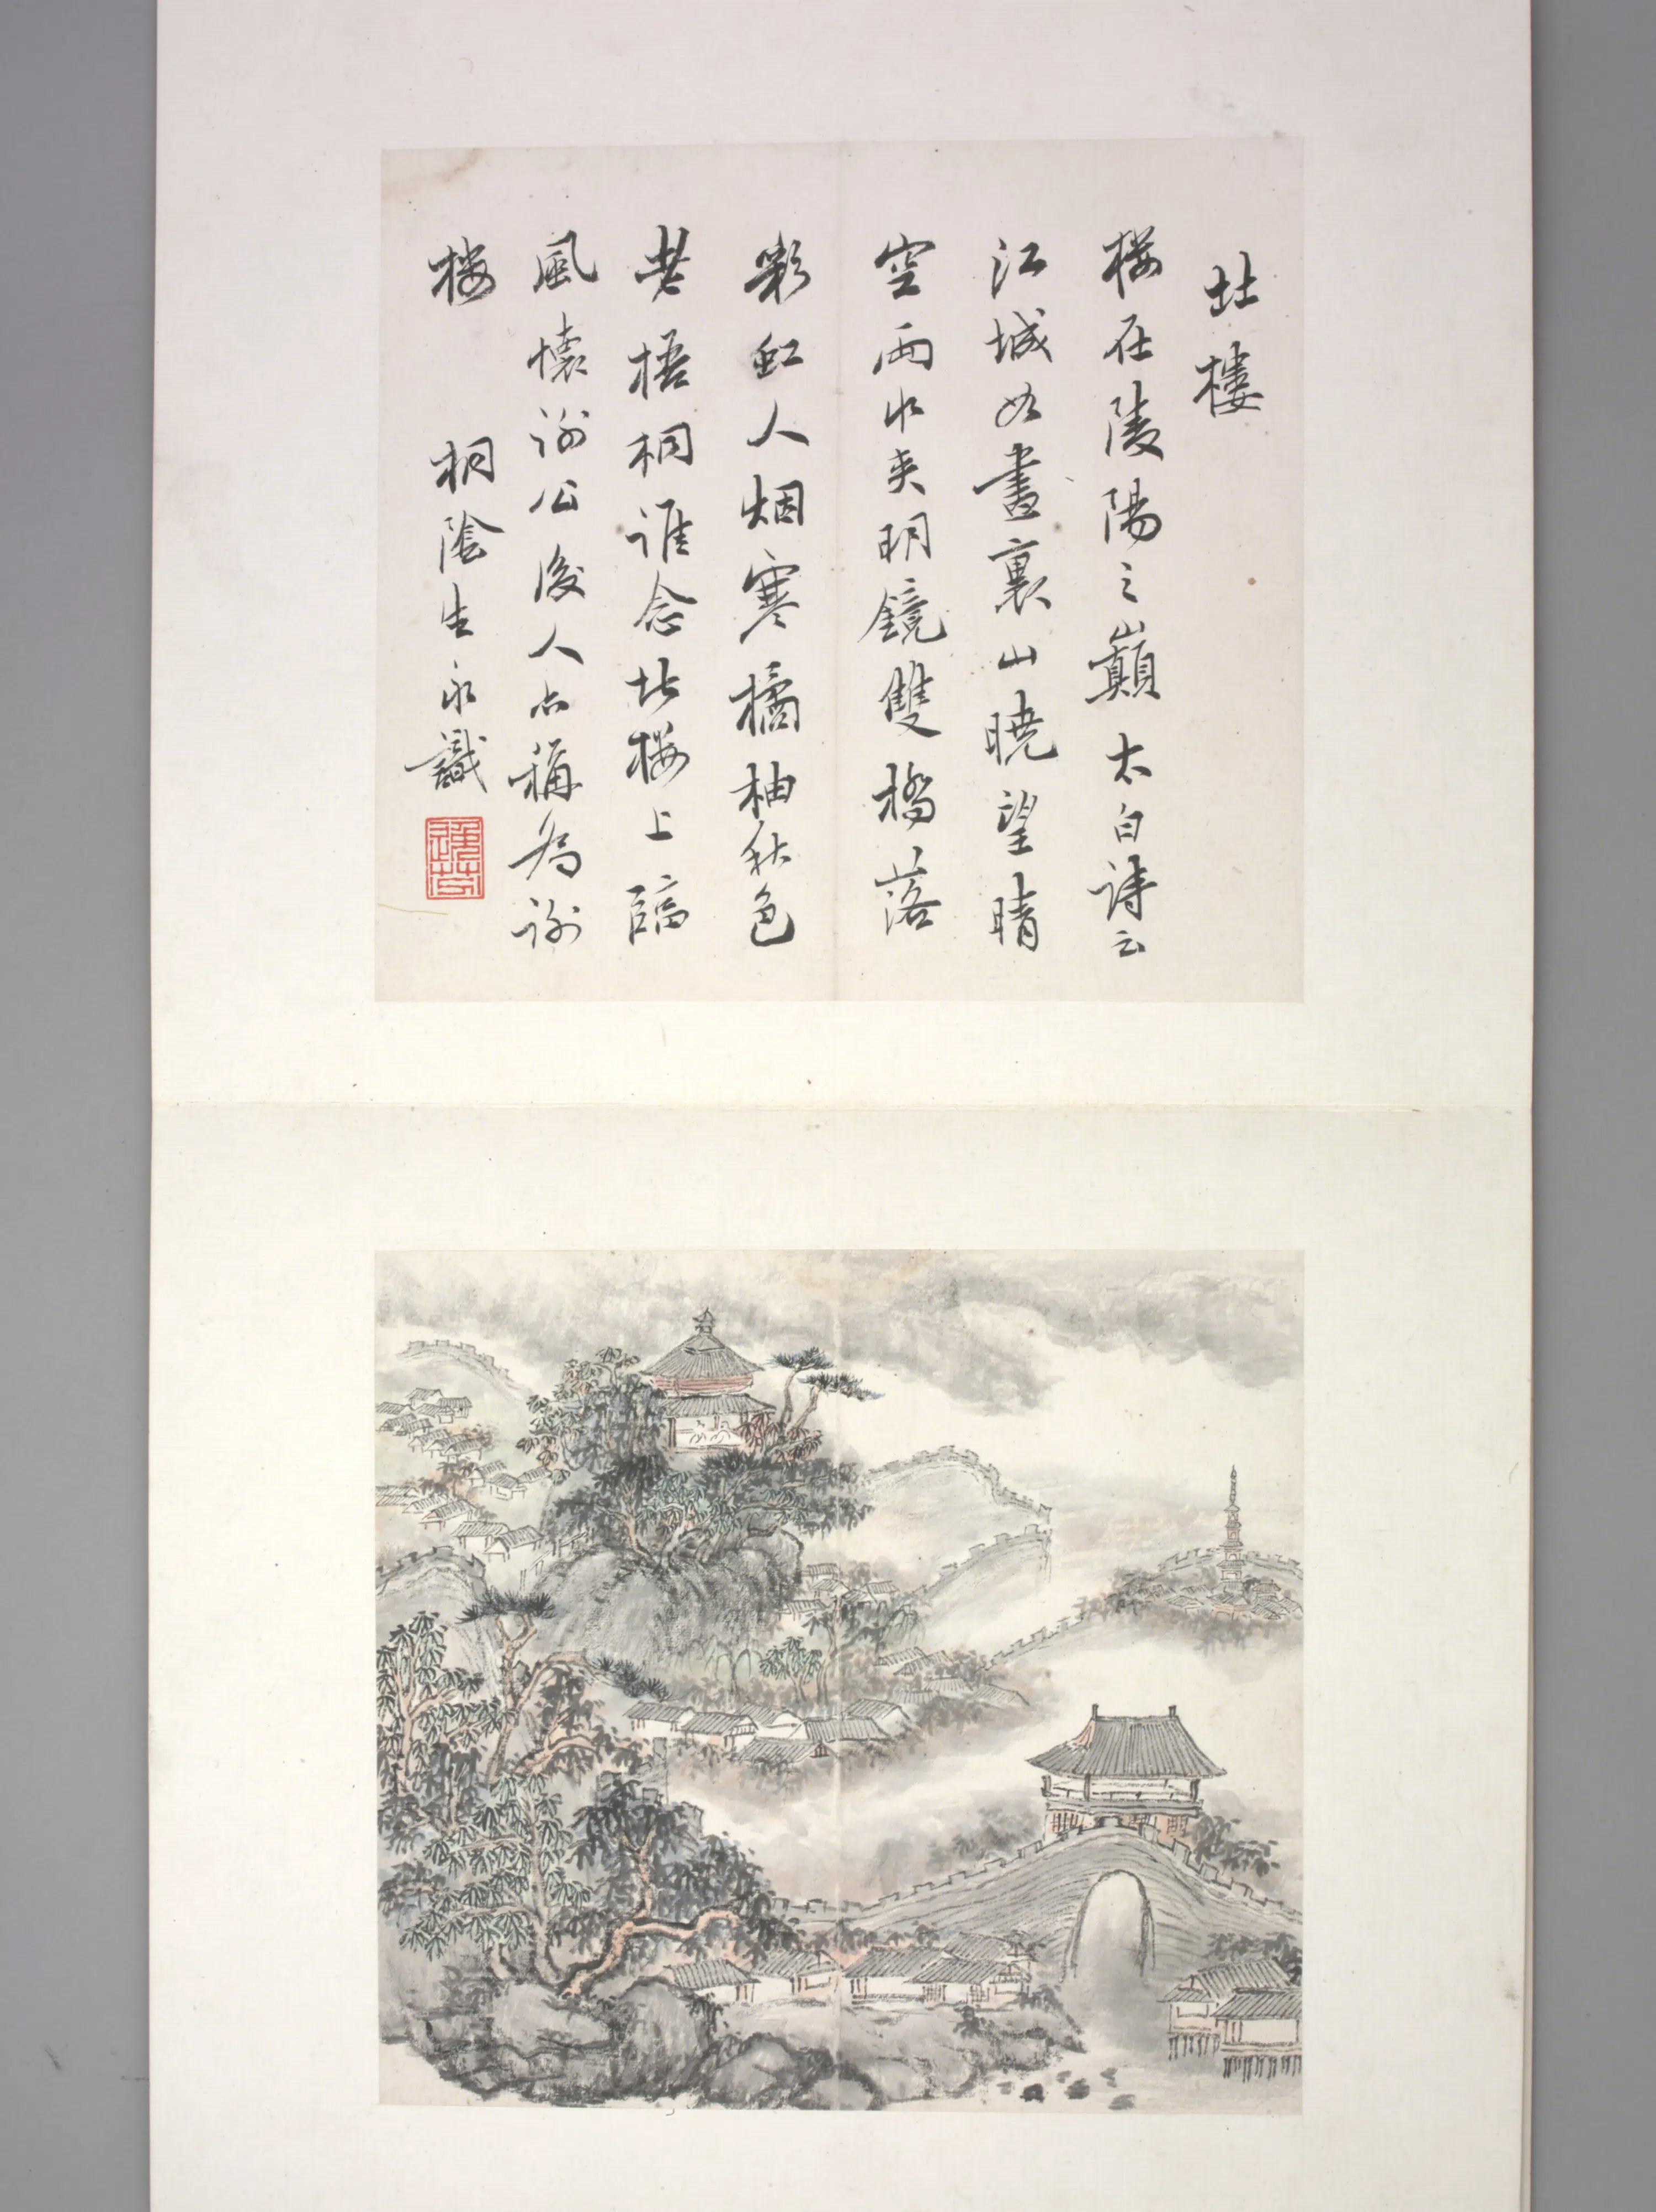 北樓
楼在陵陽之巔太白詩云
江城如畫裏山曉望晴
空兩水夾明鏡雙橋落
彩虹人烟寒橘柚秋色
老梧桐誰念北楼上臨
風懷謝公後人亦稱為謝
楼 桐陰生永識